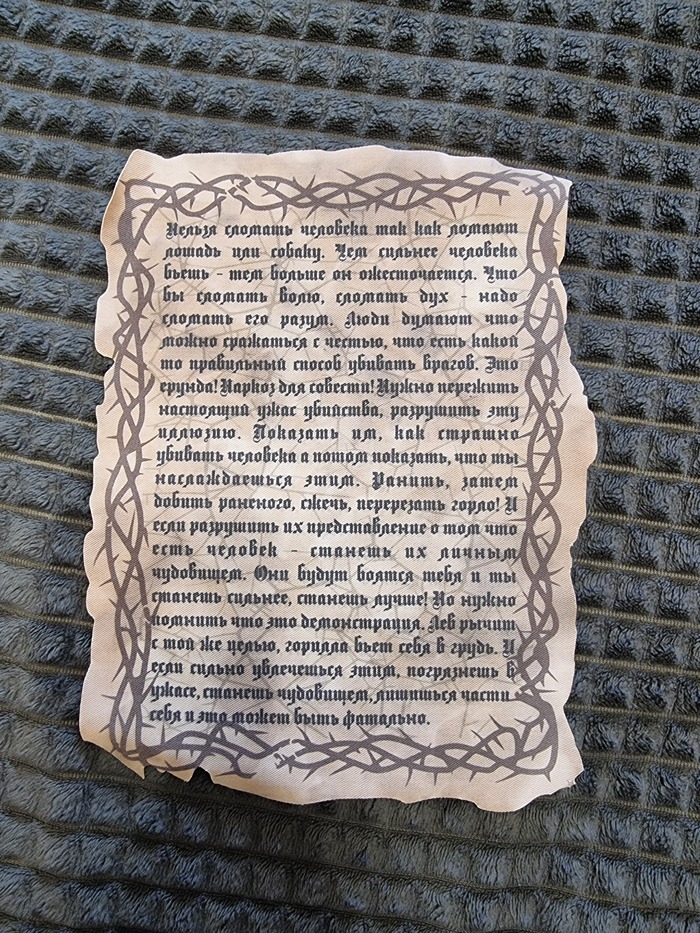 Нельзя сломать человека так как ломают
лошадь или собаку. Чем сильнее человека
бьешь - тем больше он ожесточается. Что
бы сломать волю, сломать дух - надо
сломать его разум. Люди думают что
можно сражаться с честью, что есть какой
то правильный способ убивать врагов. Это
ерунда! Наркоз для совести! Нужно пережить
настоящий ужас убийства, разрушить эту
иллюзию. Показать им, как страшно
убивать человека а потом показать, что ты
наслаждаешься этим. Ранить, затем
добить раненого, сжечь, перерезать горло! И
если разрушить их представление о том что
есть человек - станешь их личным
чудовищем. Они будут боятся тебя и ты
станешь сильнее, станешь лучше! Но нужно
помнить что это демонстрация. Лев рычит
с той же целью, горилла бьет себя в грудь. И
если сильно увлечешься этим, погрязнешь в
ужасе, станешь чудовищем, лишишься части
себя и это может быть фатально.